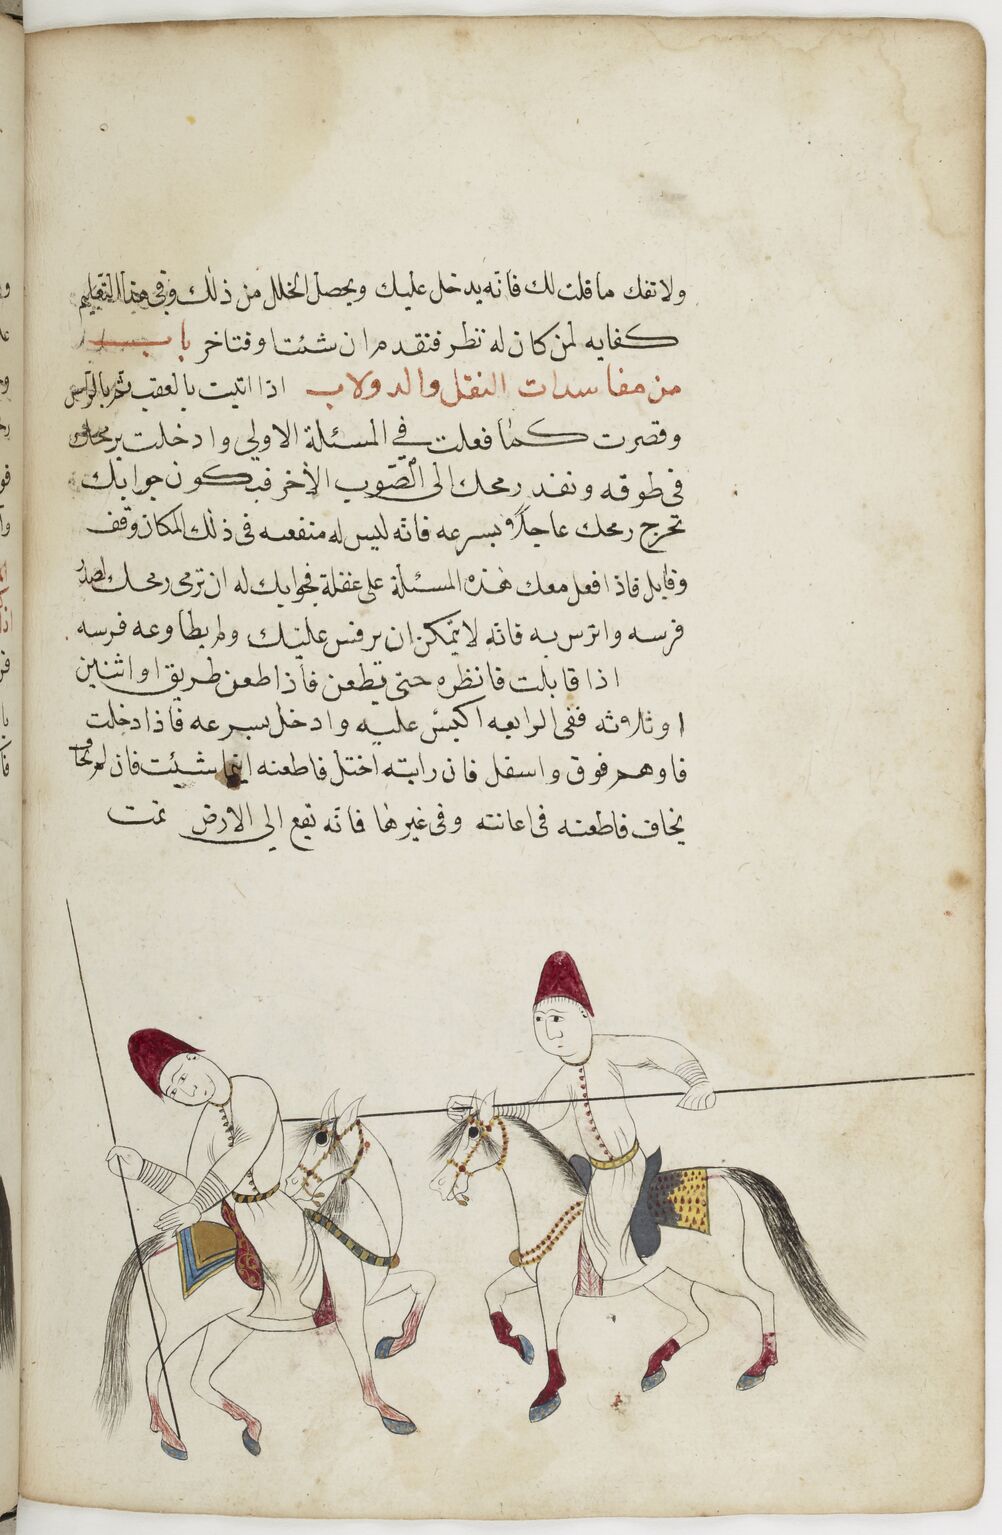 ولا تفك ما قلت لك فانه يدخل عليك ويحصل الخلل من ذلك وفى هذا التعليم
كفايه لمن كان له نظر فتقدم ان شئت او فتاخر باب
من مفاسدات النقل والدولاب اذا اتيت بالعقب ثم بالراس
وقصرت كما فعلت في المسئلة الاولى وادخلت برمحك
فى طوقه ونفد رمحك الى الصوب الاخر فيكون جوابك
تخرج رمحك عاجلا وبسرعه فانه ليس له منفعه فى ذلك المكان وقف
وقابل فاذا فعل معك هذه المسئلة على غفلة فجوابك له ان ترمى رمحك لصدر
فرسه واترس به فانه لا يتمكن ان يرفس عليك ولم يطاوعه فرسه
اذا قابلت فانظره حتى يطعن فاذا طعن طريق او اثنين
او ثلاثه ففى الرابعه اكبس عليه وادخل بسرعه فاذا دخلت
فاوهم فوق واسفل فان رايته اختل فاطعنه اينما شئت فان لم
يخاف فاطعنه فى اعانته وفى غيرها فانه يقع الى الارض تمت